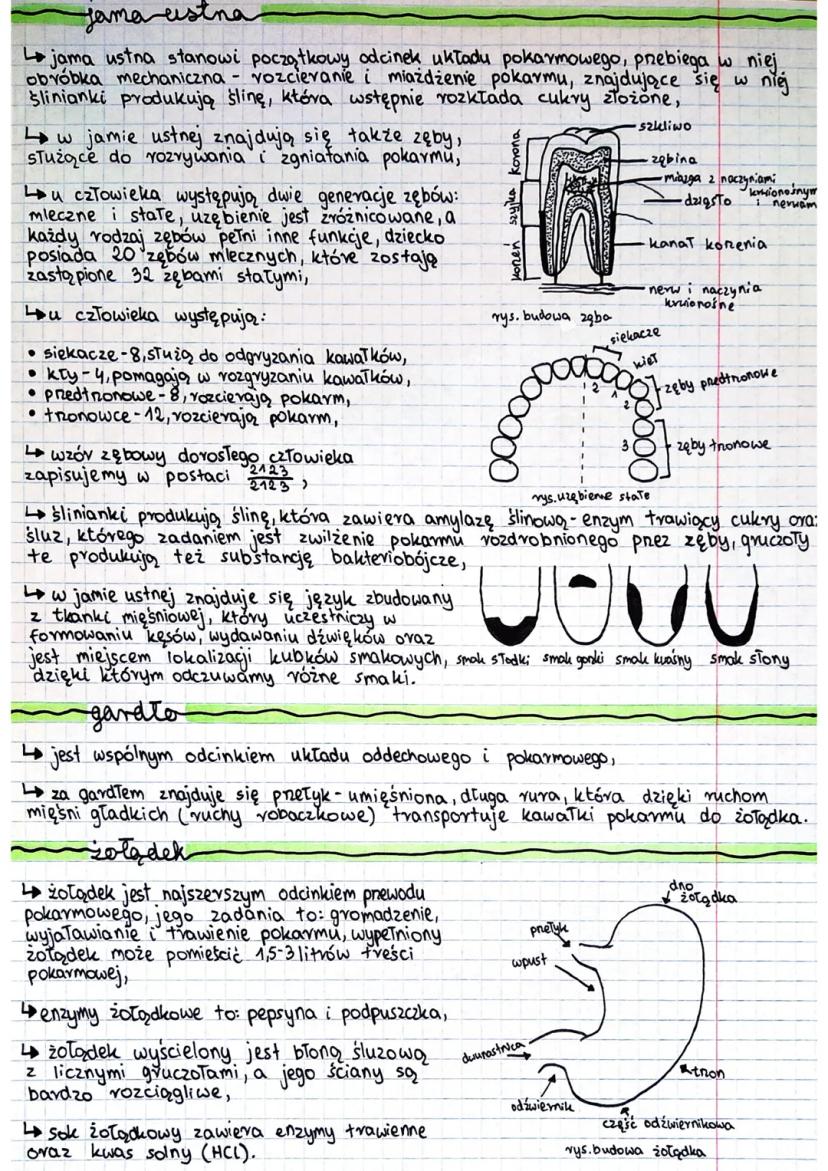 jama ustna
↳ jama ustna stanowi początkowy odcinek układu pokarmowego, przebiega w niej
obróbka mechaniczna - rozcieranie i miażdżenie pokarmu, znajdujące się w niej
ślinianki produkują ślinę, która wstępnie rozkłada cukry złożone,
↳ w jamie ustnej znajdują się także zęby,
służące do rozrywania i zgniatania pokarmu,
↳ u człowieka występują dwie generacje zębów:
mleczne i stałe, uzębienie jest zróżnicowane, a
każdy rodzaj zębów pełni inne funkcje, dziecko
posiada 20 zębów mlecznych, które zostają
zastąpione 32 zębami stałymi,
korona
szyjka
korzeń
szkliwo
zębina
miazga z naczyniami
krwionośnym
i nerwam
dziąsło
kanał korzenia
nerw i naczynia
krwionośne
rys. budowa zęba
↳ u człowieka występują:
• siekacze - 8, służą do odgryzania kawałków,
• kły - 4, pomagają w rozgryzaniu kawałków,
• przedtrzonowe - 8, rozcierają pokarm,
• trzonowce - 12, rozcierają pokarm,
↳ wzór zębowy dorosłego człowieka
zapisujemy w postaci 2123/2123,
siekacze
kieł
zęby przedtrzonowe
zęby trzonowe
2
1
2
3
rys. uzębienie stałe
↳ ślinianki produkują ślinę, która zawiera amylazę ślinową - enzym trawiący cukry oraz
śluz, którego zadaniem jest zwilżenie pokarmu rozdrobnionego przez zęby, gruczoły
te produkują też substancję bakteriobójcze,
↳ w jamie ustnej znajduje się język zbudowany
z tkanki mięśniowej, który uczestniczy w
formowaniu kęsów, wydawaniu dźwięków oraz
jest miejscem lokalizacji kubków smakowych,
dzięki którym odczuwamy różne smaki.
smak słodki smak gorzki smak kwaśny smak słony
gardło
↳ jest wspólnym odcinkiem układu oddechowego i pokarmowego,
↳ za gardłem znajduje się przełyk - umięśniona, długa rura, która dzięki ruchom
mięśni gładkich (ruchy robaczkowe) transportuje kawałki pokarmu do żołądka.
żołądek
↳ żołądek jest najszerszym odcinkiem przewodu
pokarmowego, jego zadania to: gromadzenie,
wyjaławianie i trawienie pokarmu, wypełniony
żołądek może pomieścić 1,5-3 litrów treści
pokarmowej,
↳ enzymy żołądkowe to: pepsyna i podpuszczka,
↳ żołądek wyścielony jest błoną śluzową
z licznymi gruczołami, a jego ściany są
bardzo rozciągliwe,
↳ sok żołądkowy zawiera enzymy trawienne
oraz kwas solny (HCl).
dno
żołądka
przełyk
wpust
dwunastnica
odźwiernik
trzon
część odźwiernikowa
rys. budowa żołądka